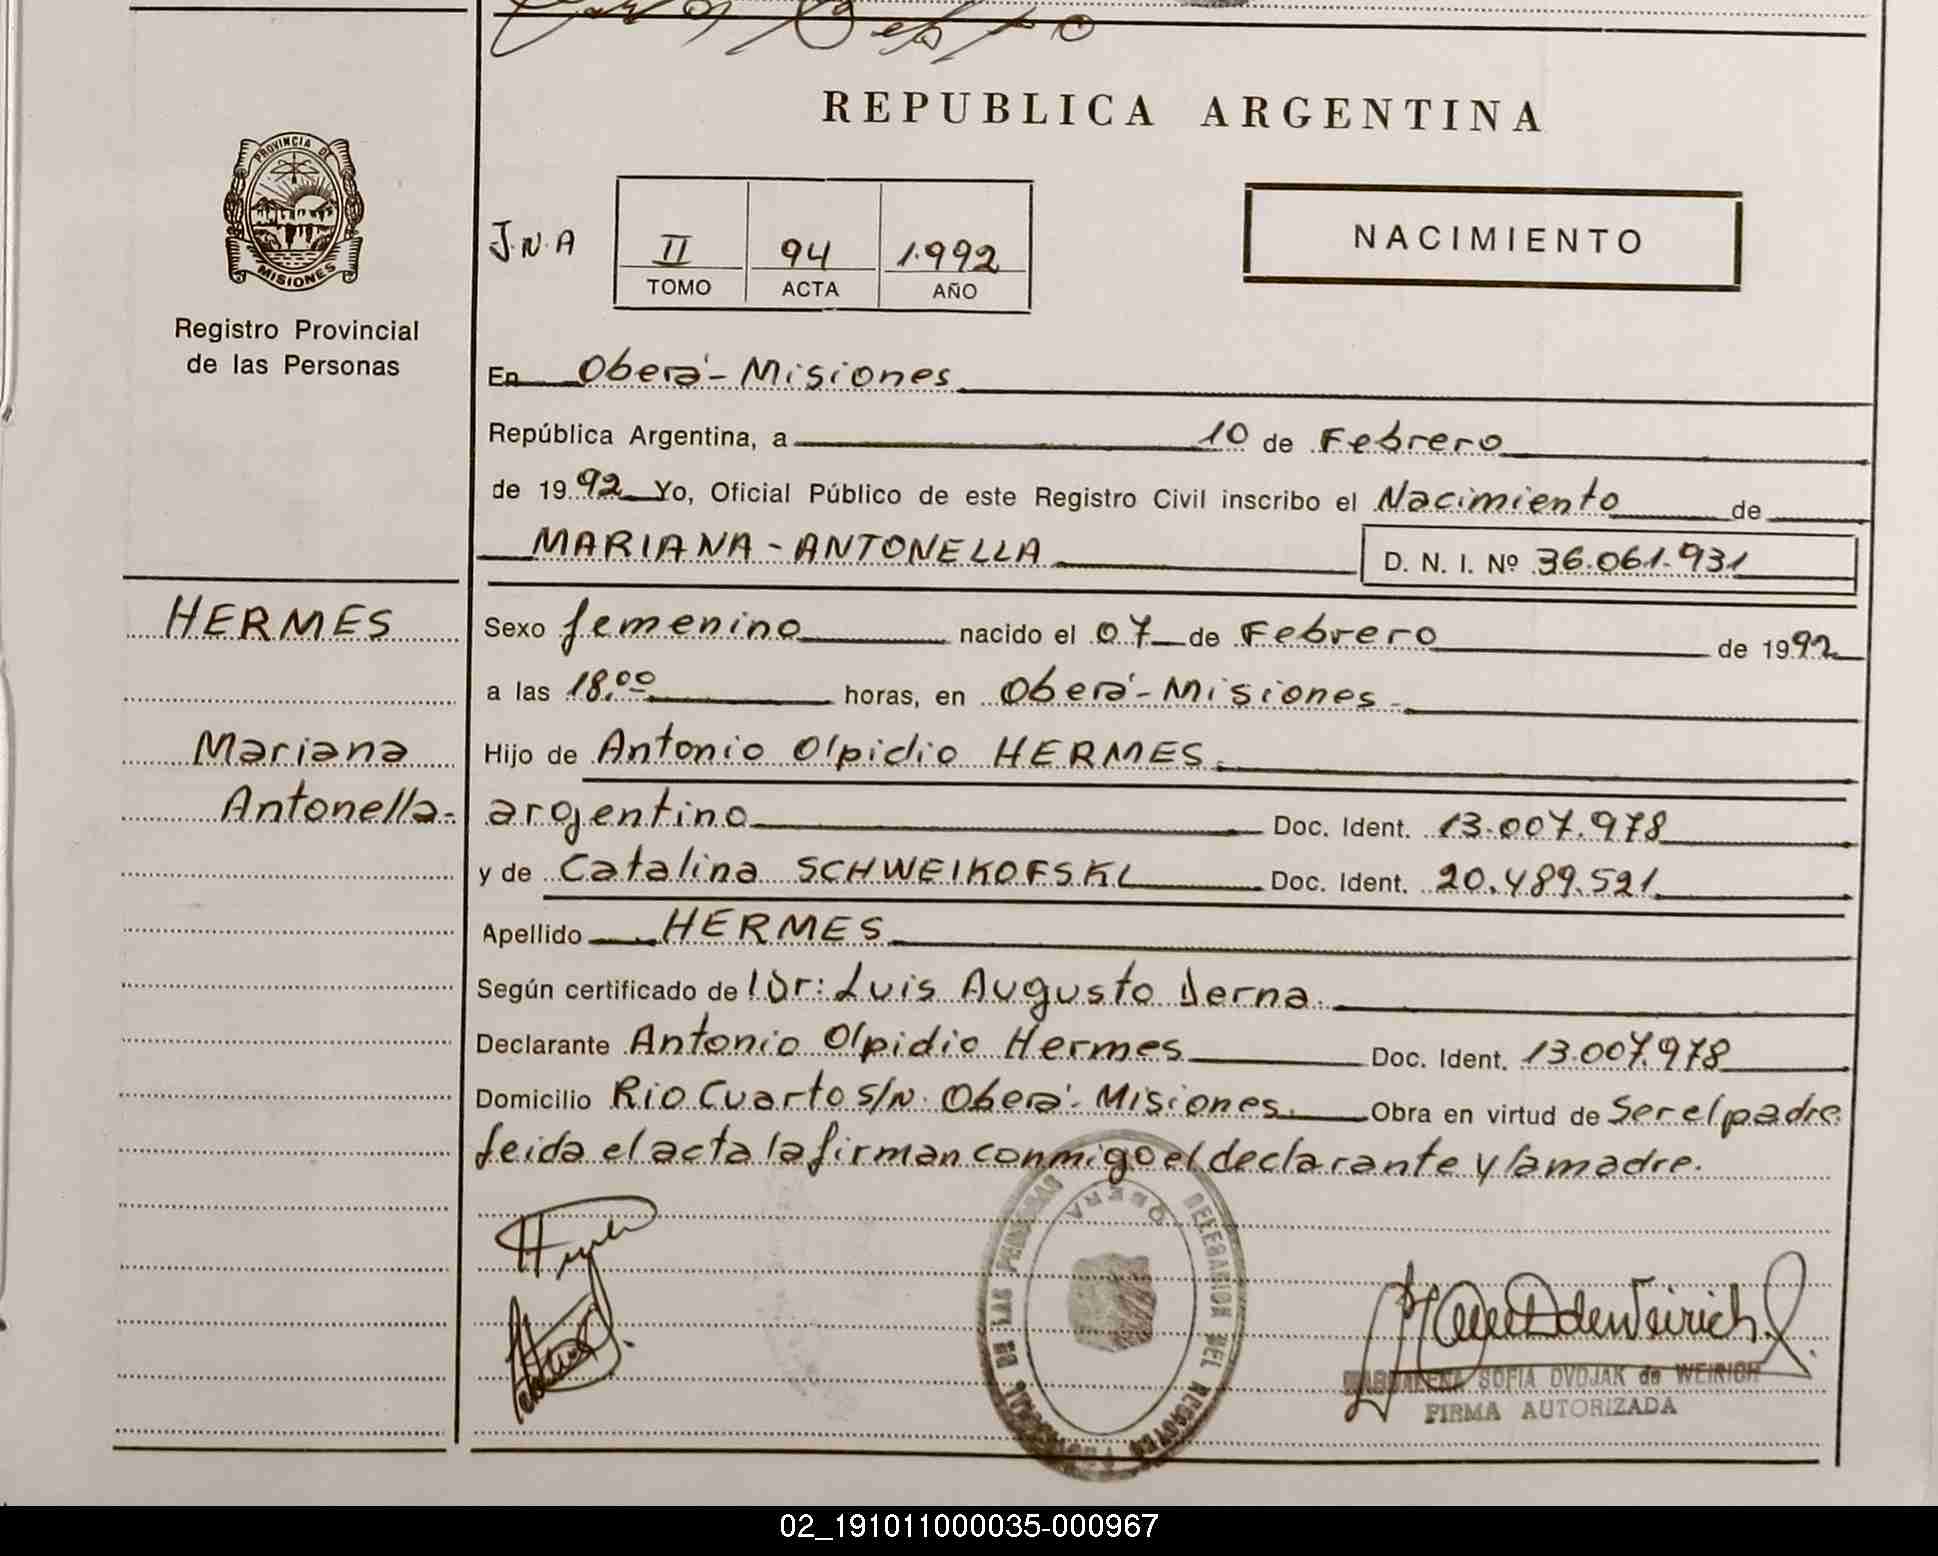 REPUBLICA ARGENTINA
PROVINCIA DE
MISIONES
Registro Provincial
de las Personas
J.N.A
II 94 1.992
TOMO ACTA AÑO
NACIMIENTO
En Oberá - Misiones
República Argentina, a 10 de Febrero
de 1992 Yo, Oficial Público de este Registro Civil inscribo el Nacimiento de
MARIANA - ANTONELLA D. N. I. Nº 36.061.931
HERMES
Sexo femenino nacido el 07 de Febrero de 1992
a las 18.00 horas, en Oberá - Misiones -
Mariana
Antonella-
Hijo de Antonio Olpidio HERMES.
argentino Doc. Ident. 13.007.978
y de Catalina SCHWEIKOFSKI Doc. Ident. 20.489.521
Apellido HERMES
Según certificado de l Dr: Luis Augusto Derna.
Declarante Antonio Olpidio Hermes Doc. Ident. 13.007.978
Domicilio Rio Cuarto S/N. Oberá - Misiones. Obra en virtud de Ser el padre.
Leida el acta la firman conmigo el declarante y la madre.
DELEGACION DEL REGISTRO PROVINCIAL DE LAS PERSONAS
OBERA
MAGDALENA SOFIA DVDJAK de WEIRICH
FIRMA AUTORIZADA
02_191011000035-000967